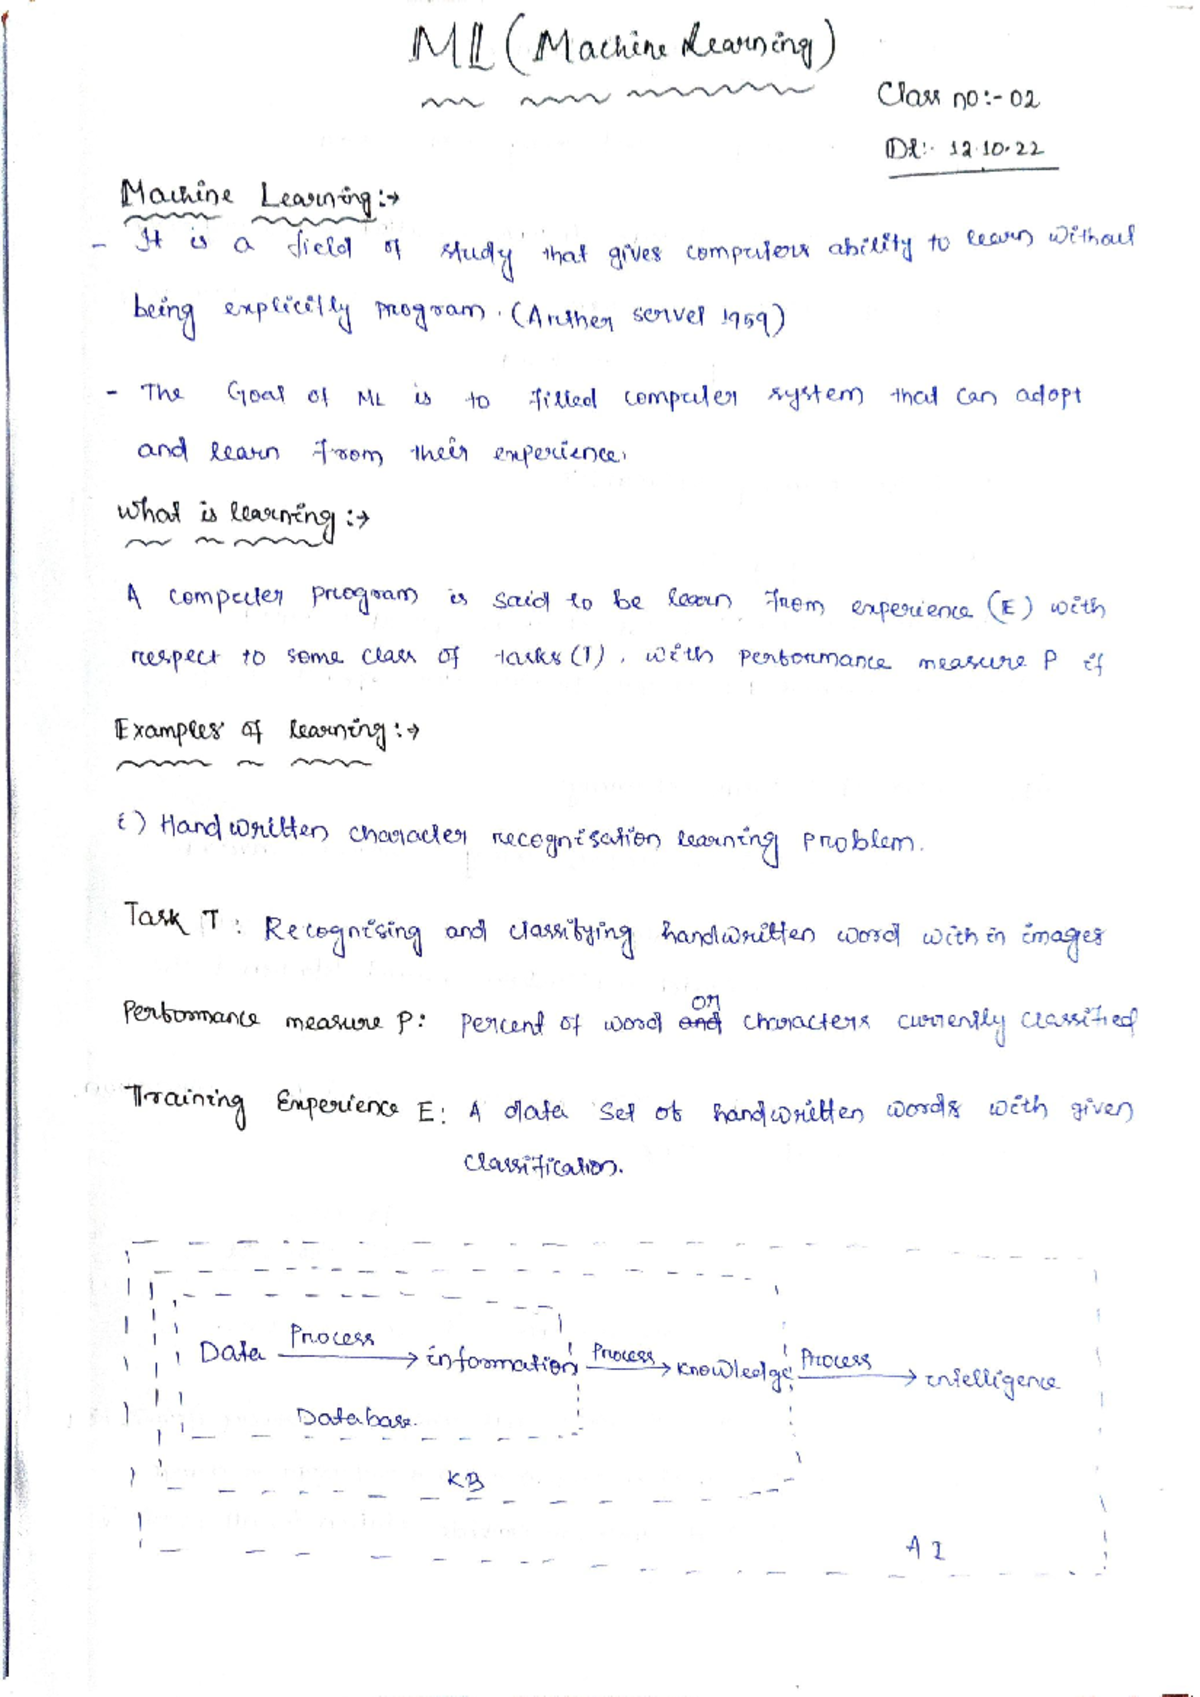 ML (Machine Learning)
Class no:- 02
Dt:- 12.10.22
Machine Learning:→
- It is a field of study that gives computers ability to learn without
being explicitly program. (Arther servel 1959)
- The Goal of ML is to filled computer system that can adopt
and learn from their experience.
What is learning:→
A computer program is said to be learn from experience (E) with
respect to some class of tasks (T), with performance measure P if
Examples of learning:→
i) Handwritten character recognisation learning problem.
Task T : Recognising and classifying handwritten word with in images
or
Performance measure P: Percent of word and characters currently classified
Training Experience E: A data set of handwritten words with given
classification.
Data Process → information Process → knowledge Process → intelligence
Database.
KB
AI